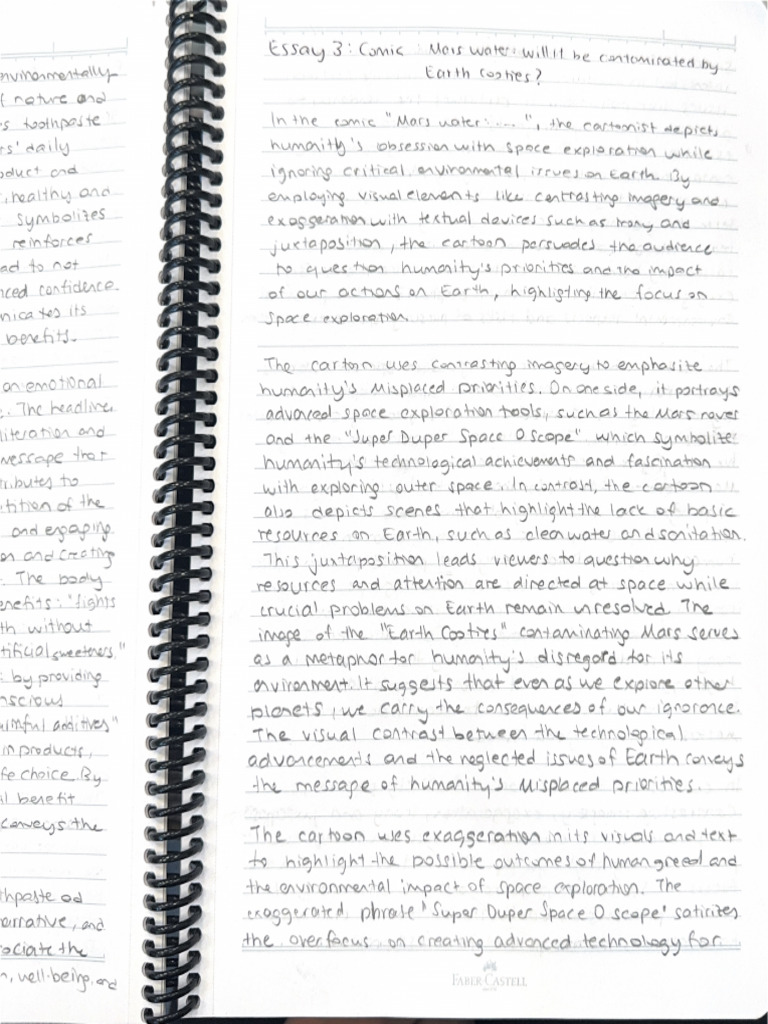 environmentally
f nature and
s toothpaste
rs' daily
oduct and
, healthy and
symbolizes
reinforces
ad to not
nced confidence.
nicates its
benefits.
on emotional
e. The headline,
literation and
message that
tributes to
tition of the
and engaging
on and creating
. The body
enefits: "fights
th without
tificial sweeteners."
: by providing
nscious
armful additives"
in products,
fe choice. By
al benefit
conveys the
thpaste ad
narrative, and
ociate the
n, well-being, and
Essay 3: Comic : Mars water: will it be contaminated by
Earth Cooties?
In the comic "Mars water:.....", the cartoonist depicts
humanity's obsession with space exploration while
ignoring critical environmental issues on Earth. By
employing visual elements like contrasting imagery and
exaggeration with textual devices such as irony and
juxtaposition, the cartoon persuades the audience
to question humanity's priorities and the impact
of our actions on Earth, highligting the focus on
space exploration.
The cartoon uses contrasting imagery to emphasize
humanity's misplaced priorities. On one side, it portrays
advanced space exploration tools, such as the Mars rover
and the "Super Duper Space O Scope" which symbolize
humanity's technological achievements and fascination
with exploring outer space. In contrast, the cartoon
also depicts scenes that highlight the lack of basic
resources on Earth, such as clean water and sanitation.
This juxtaposition leads viewers to question why
resources and attention are directed at space while
crucial problems on Earth remain unresolved. The
image of the "Earth Cooties" contaminating Mars serves
as a metaphor for humanity's disregard for its
environment. It suggests that even as we explore other
planets, we carry the consequences of our ignorance.
The visual contrast between the technological
advancements and the neglected issues of Earth conveys
the message of humanity's misplaced priorities.
The cartoon uses exaggeration in its visuals and text
to highlight the possible outcomes of human greed and
the environmental impact of space exploration. The
exaggerated phrase 'Super Duper Space O scope' satirizes
the overfocus on creating advanced technology for
FABER-CASTELL